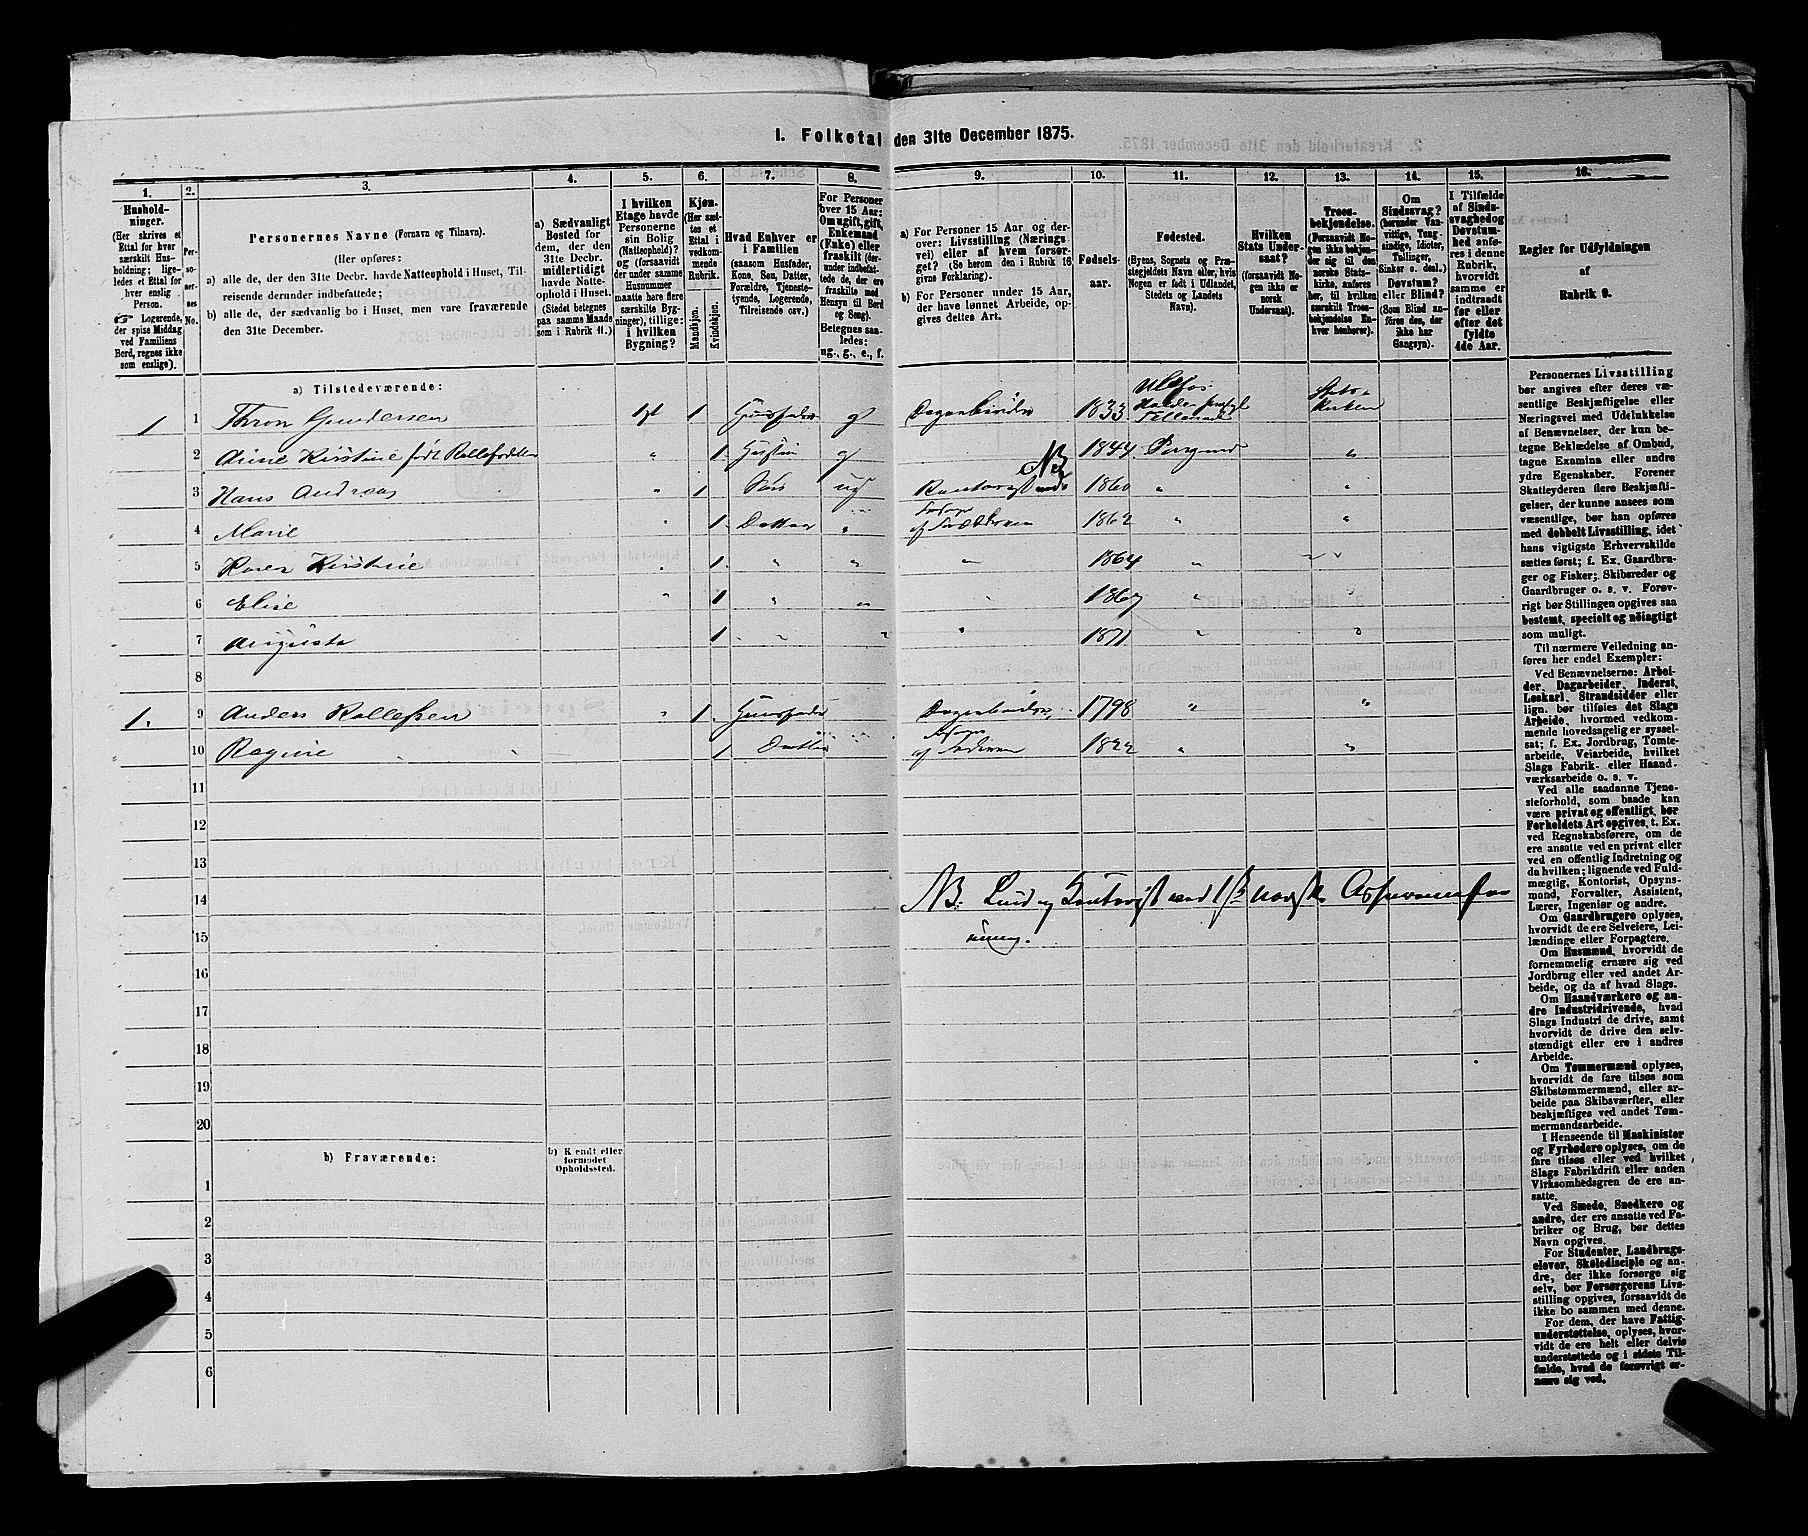 I. Folketal den 31te December 1875.
1.
Hushold-
ninger.
(Her skrives et
Ettal for hver
særskilt Hus-
holdning; lige-
ledes et Ettal for
hver enslig
Person.
Logerende,
der spise Middag
ved Familiens
Bord, regnes ikke
som enslige).
2.
Per-
soner-
nes
No.
3.
Personernes Navne (Fornavn og Tilnavn).
(Her opføres:
a) alle de, der den 31te Decbr. havde Natteophold i Huset, Til-
reisende derunder indbefattede;
b) alle de, der sædvanlig bo i Huset, men vare fraværende
den 31te December.
4.
a) Sædvanligt
Bosted for
dem, der den
31te Decbr.
midlertidigt
havde Natte-
ophold i Huset.
(Stedet betegnes
paa samme Maade
som i Rubrik 11.)
5.
I hvilken
Etage havde
Personerne
sin Bolig
(Natteophold)?
og (forsaavidt
der under samme
Husnummer
maatte høre flere
særskilte Byg-
ninger), tillige:
i hvilken
Bygning?
6.
Kjøn.
(Her sæt-
tes et
Ettal i
vedkom-
mende
Rubrik.
Mandkjøn.
Kvindekjøn.
7.
Hvad Enhver er
i Familien
(saasom Husfader,
Kone, Søn, Datter,
Forældre, Tjeneste-
tyende, Logerende,
Tilreisende osv.)
8.
For Personer
over 15 Aar:
Om ugift, gift,
Enkemand
(Enke) eller
fraskilt (der-
under indbefat-
tede de, der ere
fraskilte med
Hensyn til Bord
og Seng).
Betegnes saa-
ledes:
ug., g., e., f.
9.
a) For Personer 15 Aar og der-
over: Livsstilling (Nærings-
vei) eller af hvem forsør-
get? (Se herom den i Rubrik 16
givne Forklaring).
b) For Personer under 15 Aar,
der have lønnet Arbeide, op-
gives dettes Art.
10.
Fødsels-
aar.
11.
Fødested.
(Byens, Sognets og Præ-
stegjeldets Navn eller, hvis
Nogen er født i Udlandet,
Stedets og Landets
Navn).
12.
Hvilken
Stats Under-
saat?
(forsaavidt No-
gen ikke er
norsk
Undersaat).
13.
Troes-
bekjendelse.
(Forsaavidt No-
gen ikke bekjen-
der sig til den
norske Stats-
kirke, anføres
her, til hvilken
særskilt Troes-
bekjendelse En-
hver henhører).
14.
Om
Sindssvag?
(herunder Van-
vittige, Tung-
sindige, Idioter,
Tullinger,
Sinker o. desl.)
Døvstum?
eller Blind?
(Som Blind an-
føres den, der
ikke har
Gangsyn).
15.
I Tilfælde
af Sinds-
svaghed og
Døvstum-
hed anfø-
res i denne
Rubrik,
hvorvidt
samme er
indtraadt
før eller
efter det
fyldte
4de Aar.
16.
Regler for Udfyldningen
af
Rubrik 9.
a) Tilstedeværende:
1 1 Thron Gundersen 1st 1 Huusfader g Dagarbeider 1833
2 Anne Kirstine født Rollefsdatter " 1 g 1844 "
NB
3 Hans Andreas " 1 Søn ug 1860 " "
4 Marie " 1 Datter " 1862 " "
5 Karen Kirstine " 1 " " " 1864 " "
6 Elise " 1 " " " 1867 " "
7 Augusta 1 " " " 1871 " "
8
1. 9 Anders Rollefsen " 1 Huusfader Dagarbeider 1798 " "
10 Regine " 1 Datter 1822 " "
11
12
13
14 NB. norske
15
16
17
18
19
20
b) Fraværende:
b) Kjendt eller
formodet
Opholdssted.
1
2
3
4
5
6
Personernes Livsstilling
bør angives efter deres væ-
sentlige Beskjæftigelse eller
Næringsvei med Udelukkelse
af Benævnelser, der kun be-
tegne Beklædelse af Ombud,
tagne Examina eller andre
ydre Egenskaber. Forener
Skatteyderen flere Beskjæfti-
gelser, der kunne ansees som
væsentlige, bør han opføres
med dobbelt Livsstilling, idet
hans vigtigste Erhvervskilde
sættes først; f. Ex. Gaardbru-
ger og Fisker; Skibsreder og
Gaardbruger o. s. v. Forøv-
rigt bør Stillingen opgives saa
bestemt, specielt og nøiagtigt
som muligt.
Til nærmere Veiledning an-
føres her endel Exempler:
Ved Benævnelserne: Arbei-
der, Dagarbeider, Inderst,
Løskarl, Strandsidder eller
lign. bør tilføies det Slags
Arbeide, hvormed vedkom-
mende hovedsagelig er syssel-
sat; f. Ex. Jordbrug, Tomte-
arbeide, Veiarbeide, hvilket
Slags Fabrik- eller Haand-
værksarbeide o. s. v.
Ved alle saadanne Tjene-
steforhold, som baade kan
være privat og offentligt, bør
Forholdets Art opgives, t. Ex.
ved Regnskabsførere, om de
ere ansatte ved en privat eller
ved en offentlig Indretning og
da hvilken; lignende ved Fuld-
mægtig, Kontorist, Opsyns-
mand, Forvalter, Assistent,
Lærer, Ingeniør og andre.
Om Gaardbrugere oplyses,
hvorvidt de ere Selveiere, Lei-
lændinge eller Forpagtere.
Om Husmænd, hvorvidt de
fornemmelig ernære sig ved
Jordbrug eller ved andet Ar-
beide, og da af hvad Slags.
Om Haandværkere og an-
dre Industridrivende, hvad
Slags Industri de drive, samt
hvorvidt de drive den selv-
stændigt eller ere i andres
Arbeide.
Om Tømmermænd oplyses,
hvorvidt de fare tilsøs som
Skibstømmermænd, eller ar-
beide paa Skibsværfter, eller
beskjæftiges ved andet Tøm-
mermandsarbeide.
I Henseende til Maskinister
og Fyrbødere oplyses, om de
fare tilsøs eller ved hvilket
Slags Fabrikdrift eller anden
Virksomhedsgren de ere an-
satte.
Ved Smede, Snedkere og
andre, der ere ansatte ved Fa-
briker og Brug, bør dettes
Navn opgives.
For Studenter, Landbrugs-
elever, Skoledisciple og an-
dre, der ikke forsørge sig
selv, bør Forsørgerens Livs-
stilling opgives, forsaavidt de
ikke bo sammen med denne.
For dem, der have Fattig-
understøttelse, oplyses, hvor-
vidt de ere helt eller delvis
understøttede og i sidste Til-
fælde, hvad de forøvrigt er-
nære sig ved.